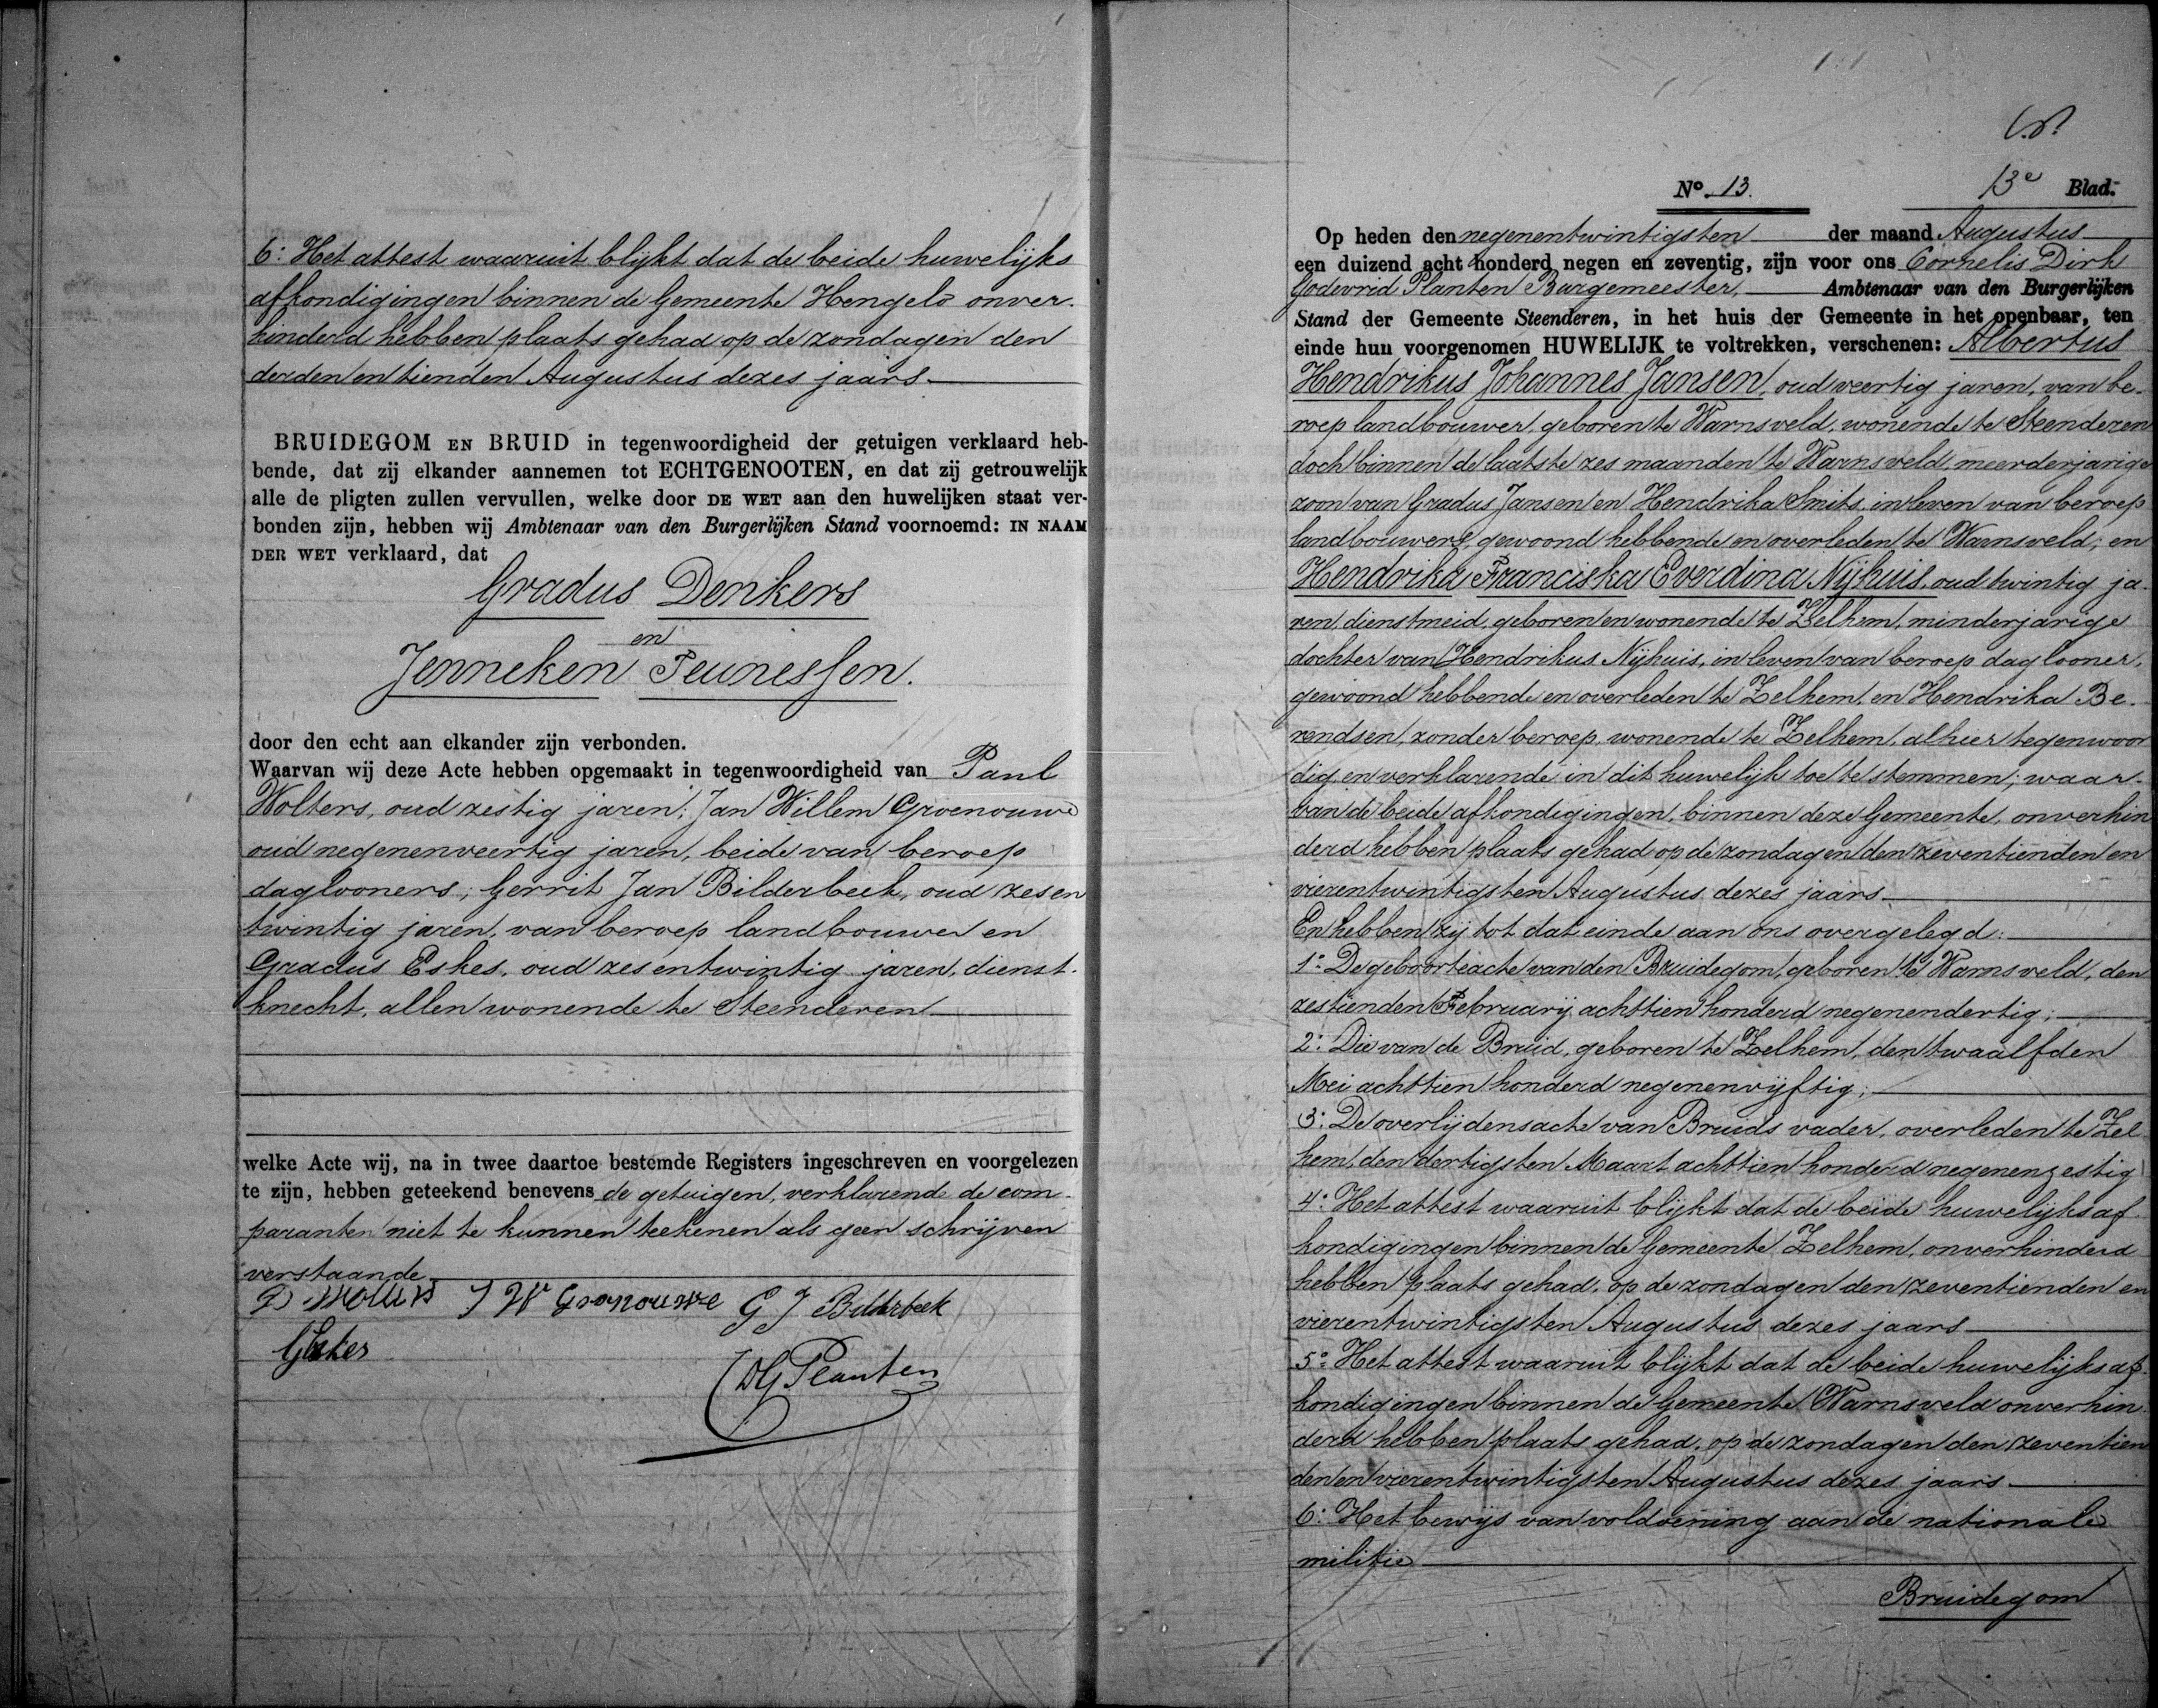 6.° Het attest waaruit blijkt dat de beide huwelijks
afkondigingen binnen de Gemeente Hengelo onver-
hinderd hebben plaats gehad op de zondagen den
derden en tienden Augustus dezes jaars.
BRUIDEGOM EN BRUID in tegenwoordigheid der getuigen verklaard heb-
bende, dat zij elkander aannemen tot ECHTGENOOTEN, en dat zij getrouwelijk
alle de pligten zullen vervullen, welke door DE WET aan den huwelijken staat ver-
bonden zijn, hebben wij Ambtenaar van den Burgerlijken Stand voornoemd: IN NAAM
DER WET verklaard, dat
Gradus Denkers
en
Jenneken Teunessen.
door den echt aan elkander zijn verbonden.
Waarvan wij deze Acte hebben opgemaakt in tegenwoordigheid van Paul
Wolters, oud zestig jaren; Jan Willem Groenouwe
oud negenenveertig jaren, beide van beroep
daglooners; Gerrit Jan Bilderbeek, oud zesen
twintig jaren, van beroep landbouwer en
Gradus Eskes, oud zesentwintig jaren, dienst-
knecht, allen wonende te Steenderen
welke Acte wij, na in twee daartoe bestemde Registers ingeschreven en voorgelezen
te zijn, hebben geteekend benevens de getuigen, verklarende de com-
paranten niet te kunnen teekenen als geen schrijven
verstaande
P Wolters J W Groenouwe G J Bilderbeek
G Eskes
CDG Planten
N° 13.
13e Blad.
Op heden den negenentwintigsten der maand Augustus
een duizend acht honderd negen en zeventig, zijn voor ons Cornelis Dirk
Godevrid Planten Burgemeester, Ambtenaar van den Burgerlijken
Stand der Gemeente Steenderen, in het huis der Gemeente in het openbaar, ten
einde hun voorgenomen HUWELIJK te voltrekken, verschenen: Albertus
Hendrikus Johannes Jansen, oud veertig jaren, van be-
roep landbouwer, geboren te Warnsveld, wonende te Steenderen
doch binnen de laatste zes maanden te Warnsveld, meerderjarige
zoon van Gradus Jansen en Hendrika Smits, in leven van beroep
landbouwers, gewoond hebbende en overleden te Warnsveld; en
Hendrika Franciska Everdina Nijhuis, oud twintig ja-
ren, dienstmeid, geboren en wonende te Zelhem, minderjarige
dochter van Hendrikus Nijhuis, in leven van beroep daglooner,
gewoond hebbende en overleden te Zelhem, en Hendrika Be-
rendsen, zonder beroep, wonende te Zelhem, alhier tegenwoor
dig, en verklarende in dit huwelijk toe te stemmen; waar-
van de beide afkondigingen, binnen deze Gemeente, onverhin
derd hebben plaats gehad op de zondagen den zeventienden en
vierentwintigsten Augustus dezes jaars.
En hebben zij tot dat einde aan ons overgelegd:
1.° De geboorteacte van den Bruidegom, geboren te Warnsveld, den
zestienden Februarij achttien honderd negenendertig;
2.° Die van de Bruid, geboren te Zelhem, den twaalfden
Mei achttien honderd negenenvijftig;
3.° De overlijdensacte van Bruids vader, overleden te Zel
hem, den dertigsten Maart achttien honderd negenenzestig
4.° Het attest waaruit blijkt dat de beide huwelijksaf
kondigingen binnen de Gemeente Zelhem, onverhinderd
hebben plaats gehad, op de zondagen den zeventienden en
vierentwintigsten Augustus dezes jaars
5.° Het attest waaruit blijkt dat de beide huwelijksaf-
kondigingen binnen de Gemeente Warnsveld onverhin
derd hebben plaats gehad, op de zondagen den zeventien
den en vierentwintigsten Augustus dezes jaars.
6.° Het bewijs van voldoening aan de nationale
militie
Bruidegom